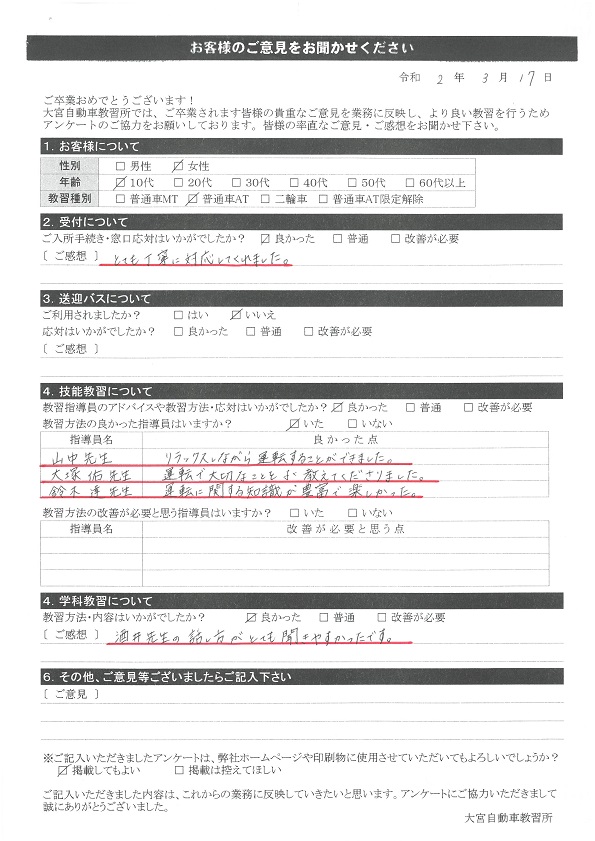 お客様のご意見をお聞かせください
令和 2 年 3 月 17 日
ご卒業おめでとうございます！
大宮自動車教習所では、ご卒業されます皆様の貴重なご意見を業務に反映し、より良い教習を行うため
アンケートのご協力をお願いしております。皆様の率直なご意見・ご感想をお聞かせ下さい。
1. お客様について
性別 □ 男性 ☑ 女性
年齢 ☑ 10代 □ 20代 □ 30代 □ 40代 □ 50代 □ 60代以上
教習種別 □ 普通車MT ☑ 普通車AT □ 二輪車 □ 普通車AT限定解除
2. 受付について
ご入所手続き・窓口応対はいかがでしたか？ ☑ 良かった □ 普通 □ 改善が必要
〔 ご感想 〕 とても丁寧に対応してくれました。
3. 送迎バスについて
ご利用されましたか？ □ はい ☑ いいえ
応対はいかがでしたか？ □ 良かった □ 普通 □ 改善が必要
〔 ご感想 〕
4. 技能教習について
教習指導員のアドバイスや教習方法・応対はいかがでしたか？ ☑ 良かった □ 普通 □ 改善が必要
教習方法の良かった指導員はいますか？ ☑ いた □ いない
指導員名 良かった点
山中先生 リラックスしながら運転することができました。
大塚佑先生 運転で大切なことをよく教えてくださりました。
鈴木 先生 運転に関する知識が豊富で楽しかった。
教習方法の改善が必要と思う指導員はいますか？ □ いた □ いない
指導員名 改善が必要と思う点
4. 学科教習について
教習方法・内容はいかがでしたか？ ☑ 良かった □ 普通 □ 改善が必要
〔 ご感想 〕 酒井先生の話し方がとても聞きやすかったです。
6. その他、ご意見等ございましたらご記入下さい
〔 ご意見 〕
※ご記入いただきましたアンケートは、弊社ホームページや印刷物に使用させていただいてもよろしいでしょうか？
☑ 掲載してもよい □ 掲載は控えてほしい
ご記入いただきました内容は、これからの業務に反映していきたいと思います。アンケートにご協力いただきまして
誠にありがとうございました。
大宮自動車教習所